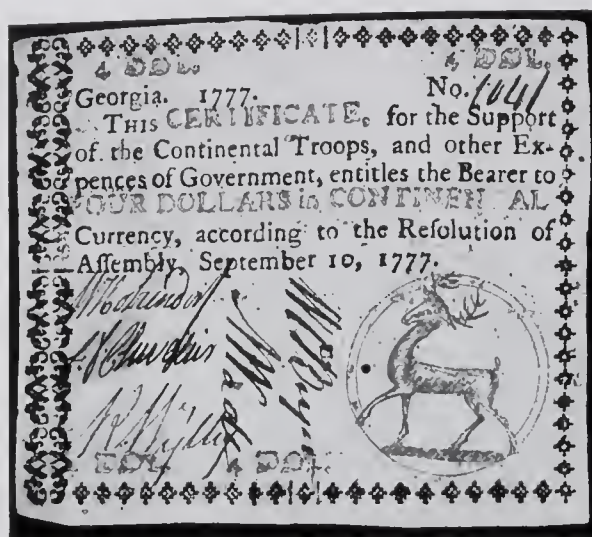 4 DOL. 4 DOL.
Georgia. 1777. No. 1041
THIS CERTIFICATE, for the Support
of the Continental Troops, and other Ex-
pences of Government, entitles the Bearer to
FOUR DOLLARS in CONTINENTAL
Currency, according to the Reſolution of
Aſſembly, September 10, 1777.
DOL. 4 DOL.